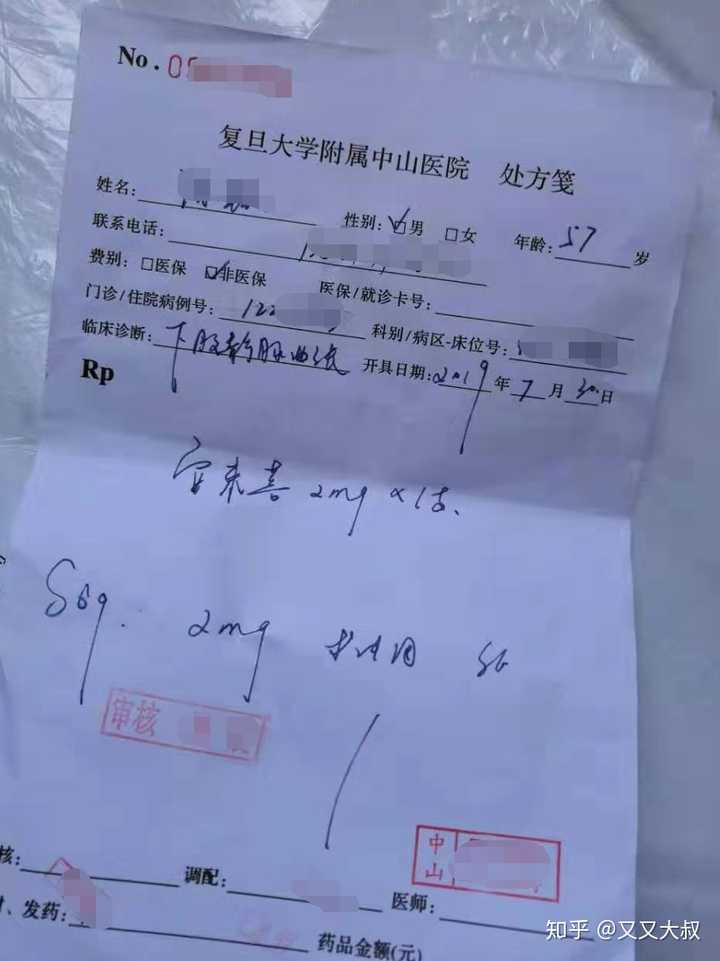 No. 0
复旦大学附属中山医院 处方笺
姓名: 性别: ☑男 □女 年龄: 57 岁
联系电话: 1
费别: □医保 ☑非医保 医保/就诊卡号:
门诊/住院病例号: 122 科别/病区-床位号:
临床诊断: 下肢静脉曲张 开具日期: 2019 年 7 月 30 日
Rp
2mg ×1支
Sig. 2mg
审核
中山
核: 调配: 医师:
、发药: 药品金额(元)
知乎 @又又大叔